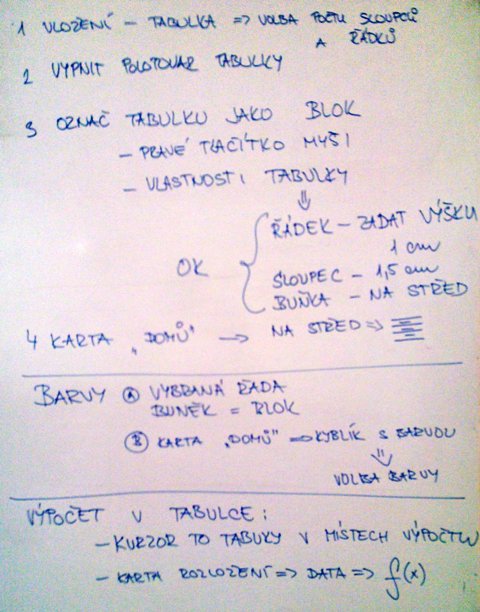 1 VLOŽENÍ – TABULKA => VOLBA POČTU SLOUPCŮ
A ŘÁDKŮ
2 VYPNIT POLOTOVAR TABULKY
3 OZNAČ TABULKU JAKO BLOK
– PRAVÉ TLAČÍTKO MYŠI
– VLASTNOSTI TABULKY
ŘÁDEK – ZADAT VÝŠKU
1 cm
OK
SLOUPEC – 1,5 cm
BUŇKA – NA STŘED
4 KARTA „DOMŮ" → NA STŘED =>
BARVY Ⓐ VYBRANÁ ŘADA
BUNĚK = BLOK
Ⓑ KARTA „DOMŮ" => KYBLÍK S BARVOU
VOLBA BARVY
VÝPOČET V TABULCE:
– KURZOR TO TABULKY V MÍSTECH VÝPOČTU
– KARTA ROZLOŽENÍ => DATA => f(x)